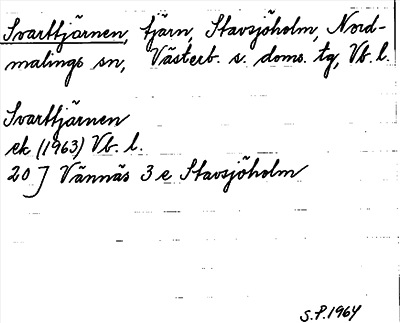 Svarttjärnen, tjärn, Stavsjöholm, Nord-
malings sn, Västerb. s. doms. tg, Vb. l.
Svarttjärnen
ek (1963) Vb. l.
20 J Vännäs 3 e Stavsjöholm
S.P. 1964